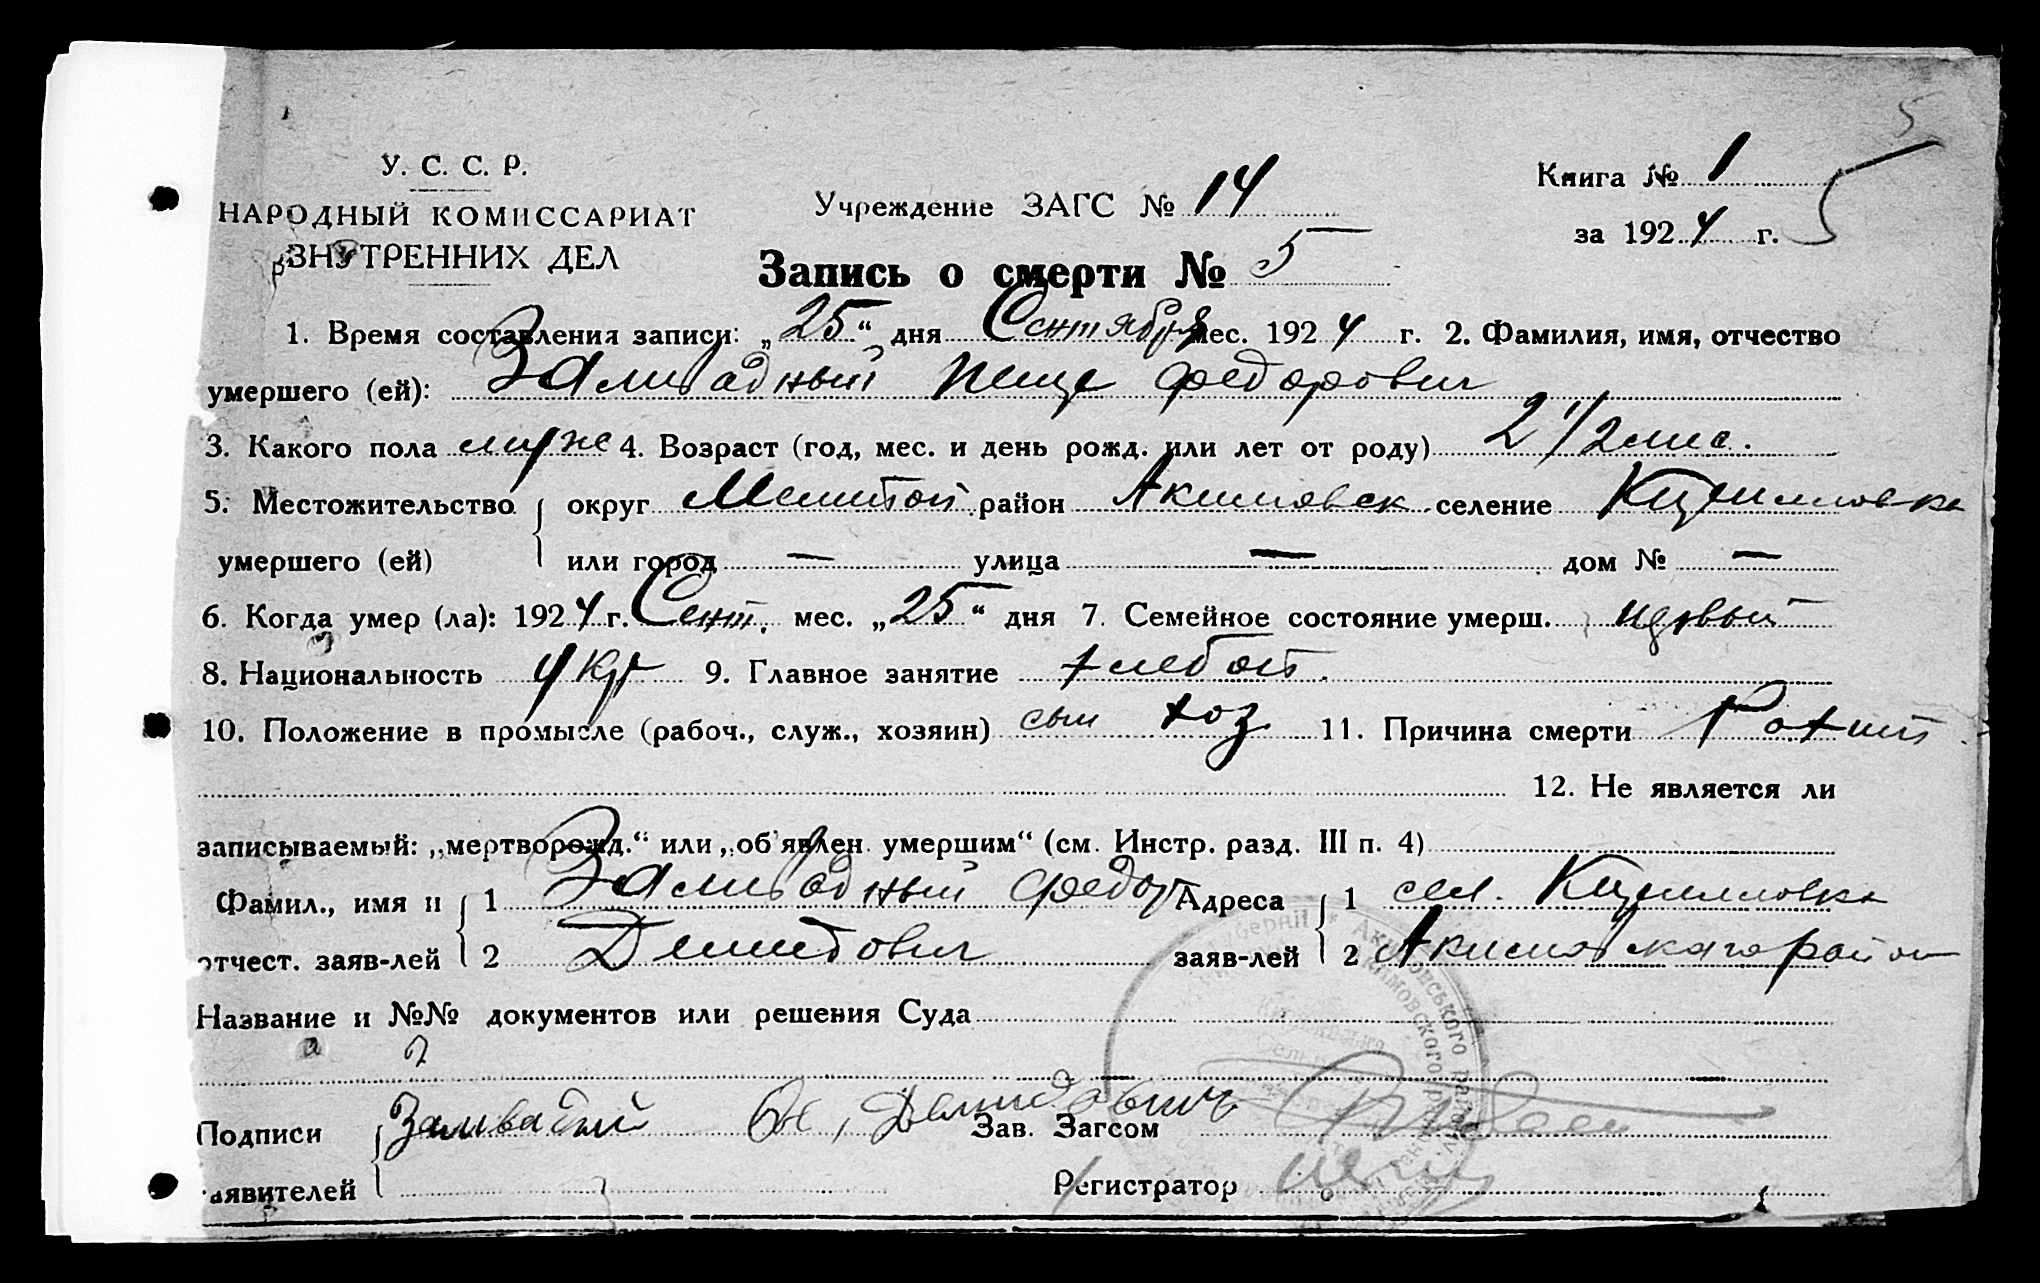 5
У. С. С. Р.
НАРОДНЫЙ КОМИССАРИАТ
ВНУТРЕННИХ ДЕЛ
Учреждение ЗАГС № 14
Книга № 1
за 1924 г.
5
Запись о смерти № 5
1. Время составления записи: „25“ дня Сентября мес. 1924 г. 2. Фамилия, имя, отчество
умершего (ей): Заливадный Федорович
3. Какого пола муж 4. Возраст (год, мес. и день рожд. или лет от роду) 2 1/2 мес.
5. Местожительство округ Мелитоп район Акимовск селение Кирилловка
умершего (ей) или город — улица — дом № —
6. Когда умер (ла): 1924 г. Сент. мес. „25“ дня 7. Семейное состояние умерш.
8. Национальность укр 9. Главное занятие хлебоп.
10. Положение в промысле (рабоч., служ., хозяин) сын хоз 11. Причина смерти Рахит
12. Не является ли
записываемый: „мертворожд.“ или „об'явлен умершим“ (см. Инстр. разд. III п. 4)
Фамил., имя и 1 Заливадный Федор Адреса 1 сел. Кирилловка
отчест. заяв-лей 2 Демидович заяв-лей 2 Акимовского района
Название и №№ документов или решения Суда
Подписи Заливадний Ѳе, Демидовичь Зав. Загсом
заявителей Регистратор